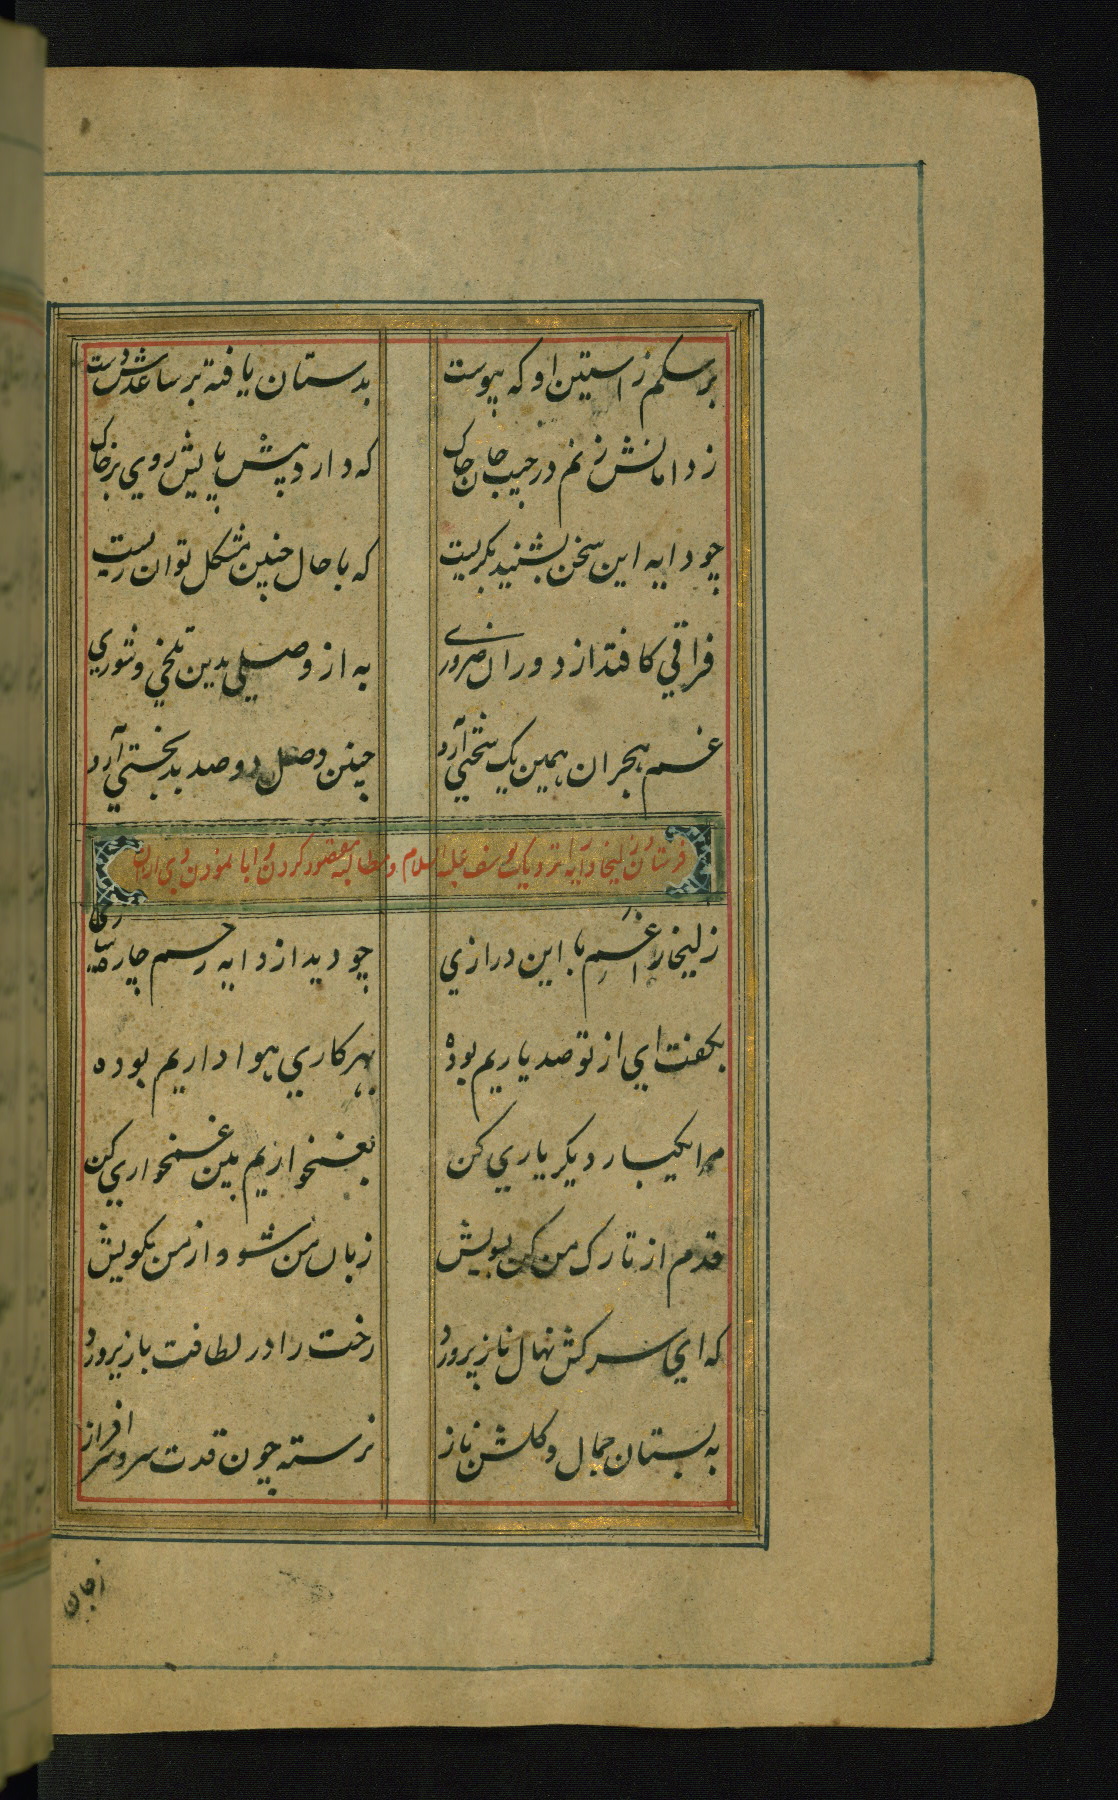 برسکم ز استین او که پیوست بدستان یافته بر ساعدش دست
ز دامانش زنم در جیب جان چاک که دارد پیش پایش روی بر خاک
چو دایه این سخن بشنید بگریست که با حال چنین مشکل توان زیست
فراقی کافتد از دوران ضروری به از وصلی بدین تلخی و شوری
غم هجران همین یک سختی آرد چنین وصل دو صد بدبختی آرد
فرستادن زلیخا دایه را نزدیک یوسف علیه السلام و مطالبه مقصود کردن و ابا نمودن وی از ان
زلیخا را غم با این درازی چو دید از دایه رحم چاره سازی
بگفت ای از تو صد یاریم بوده بهر کاری هواداریم بوده
مرا یکبار دیگر یاری کن بغمخواریم بین غمخواری کن
قدم از تارک من کن بسویش زبان من شو و از من بگویش
که ای سرکش نهال ناز پرورد رخت را در لطافت باز پرورد
به بستان جمال و گلشن ناز نرسته چون قدت سرو سرافراز
ز جان